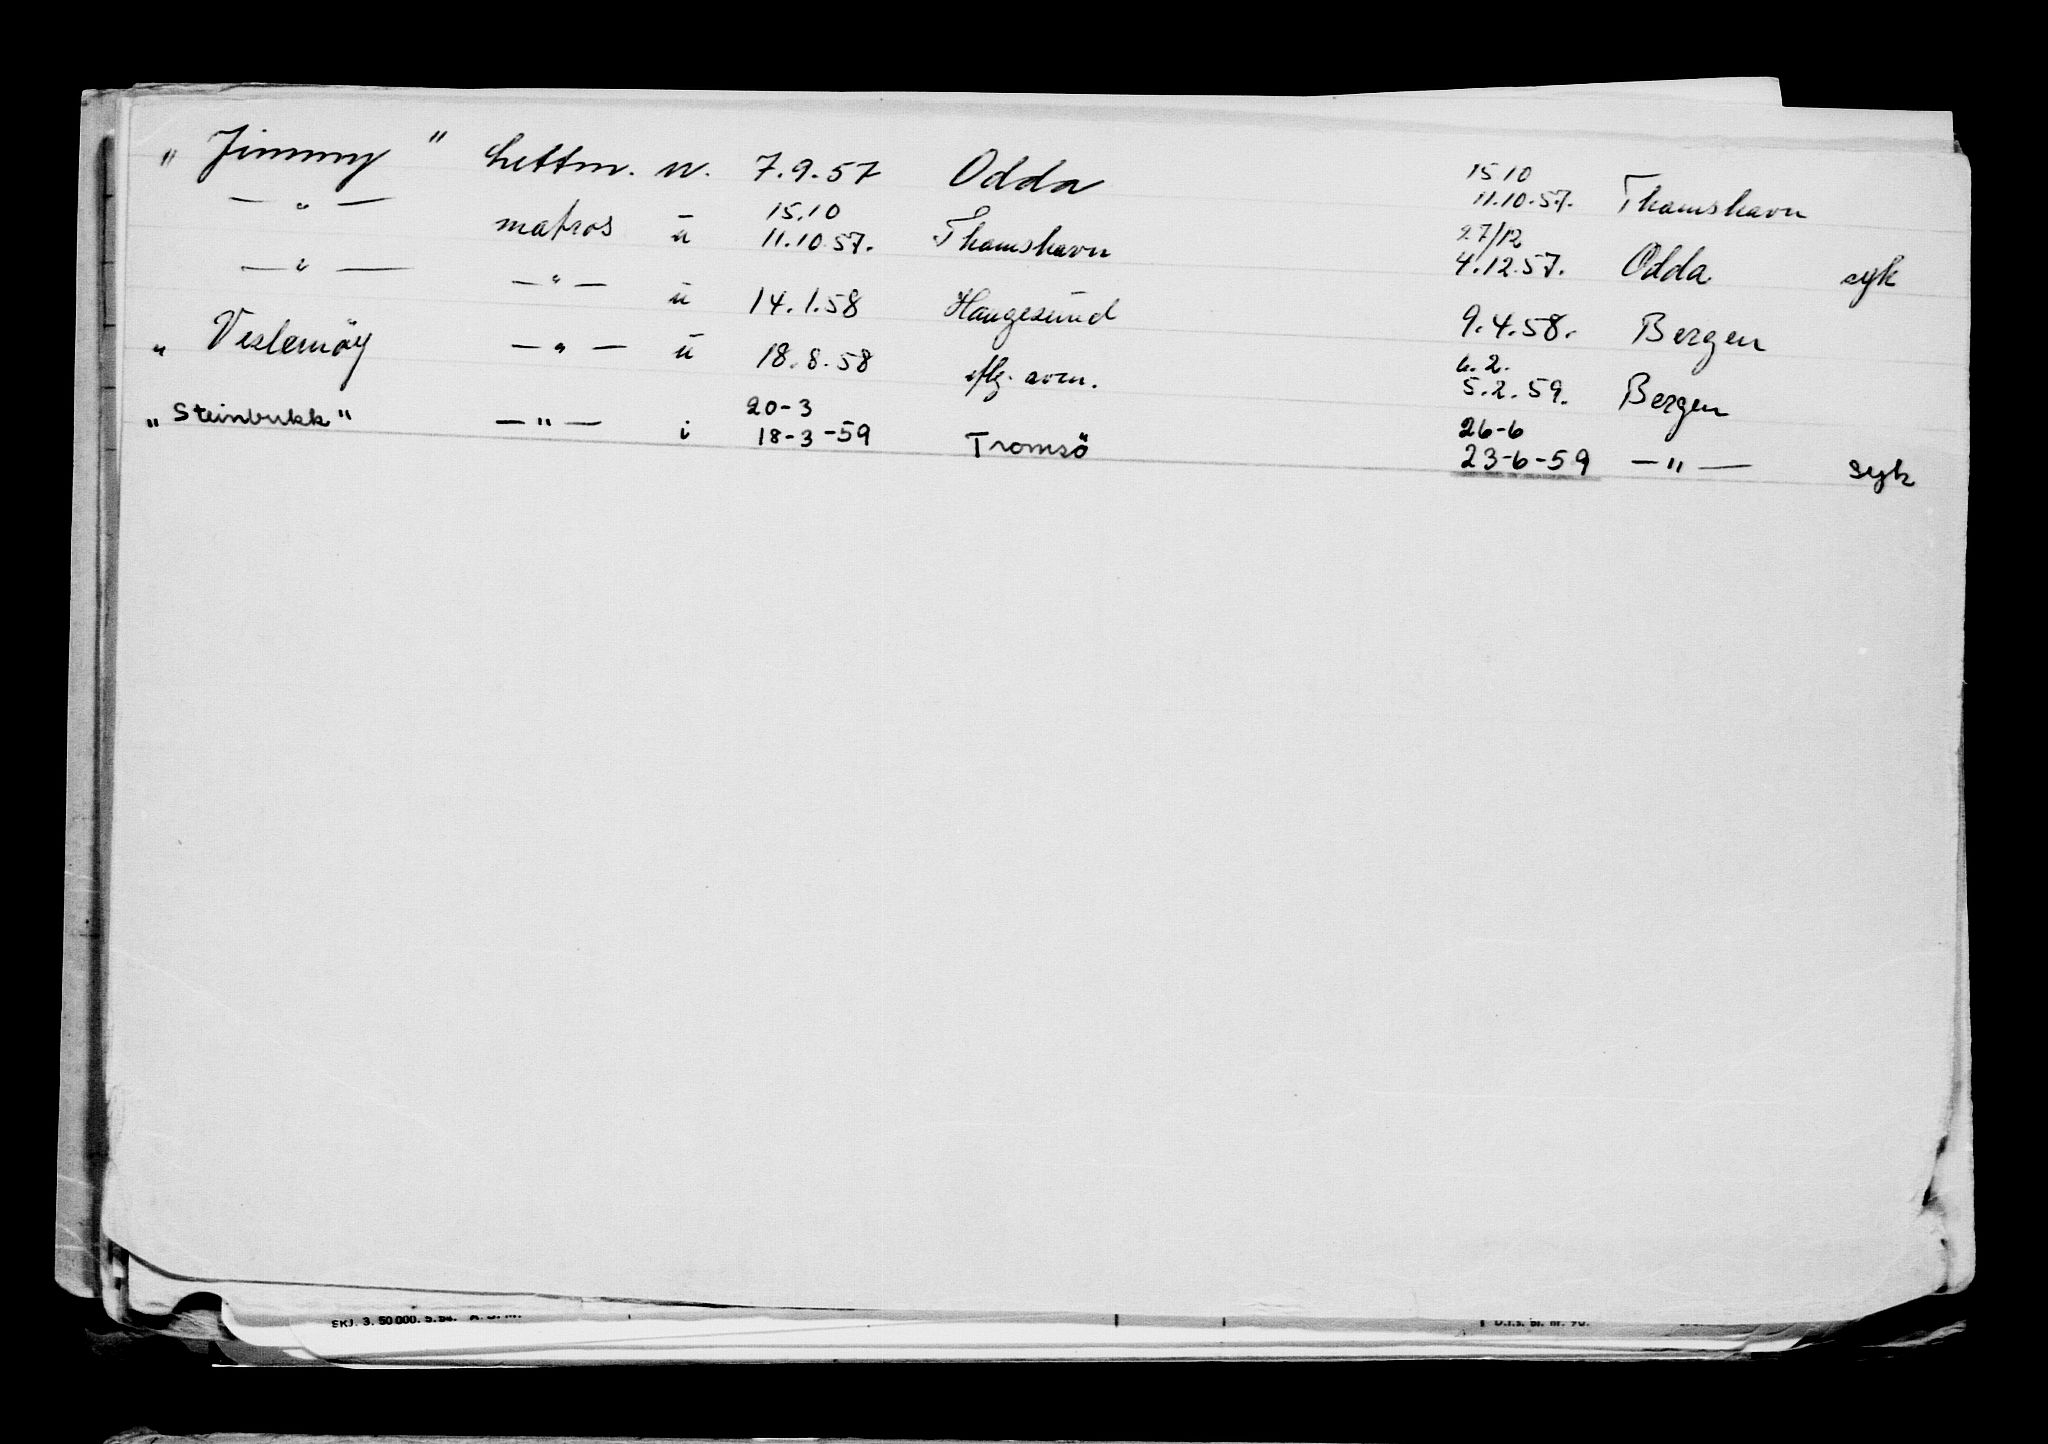 „ Jimmy " lettm. u. 7.9.57 Odda 15 10 11.10.57. Thamshavn
— „ — matros u 15.10 11.10.57. Thamshavn 27/12 4.12.57. Odda syk
— „ — — „ — u 14.1.58 Haugesund 9.4.58. Bergen
„ Veslemöy — „ — u 18.8.58 6.2. 5.2.59. Bergen
„ Steinbukk" — " — i 20-3 18-3-59 Tromsö 26-6 23-6-59 — " — syk
SKJ. 3. 50 000. 5.54. A. S. M.
D.i.s. bl. nr. 90.